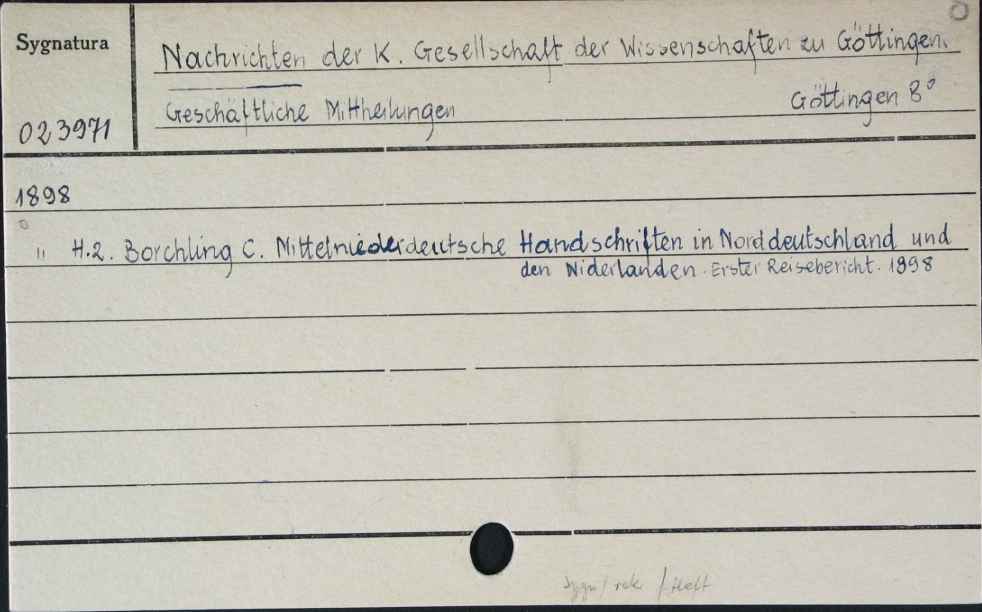 Sygnatura
Nachrichten der K. Gesellschaft der Wissenschaften zu Göttingen.
Geschäftliche Mittheilungen Göttingen 8°
023971
1898
" H.2. Borchling C. Mittelniederdeutsche Handschriften in Norddeutschland und
den Niderlanden. Erster Reisebericht. 1898
Sygn / rok / Heft